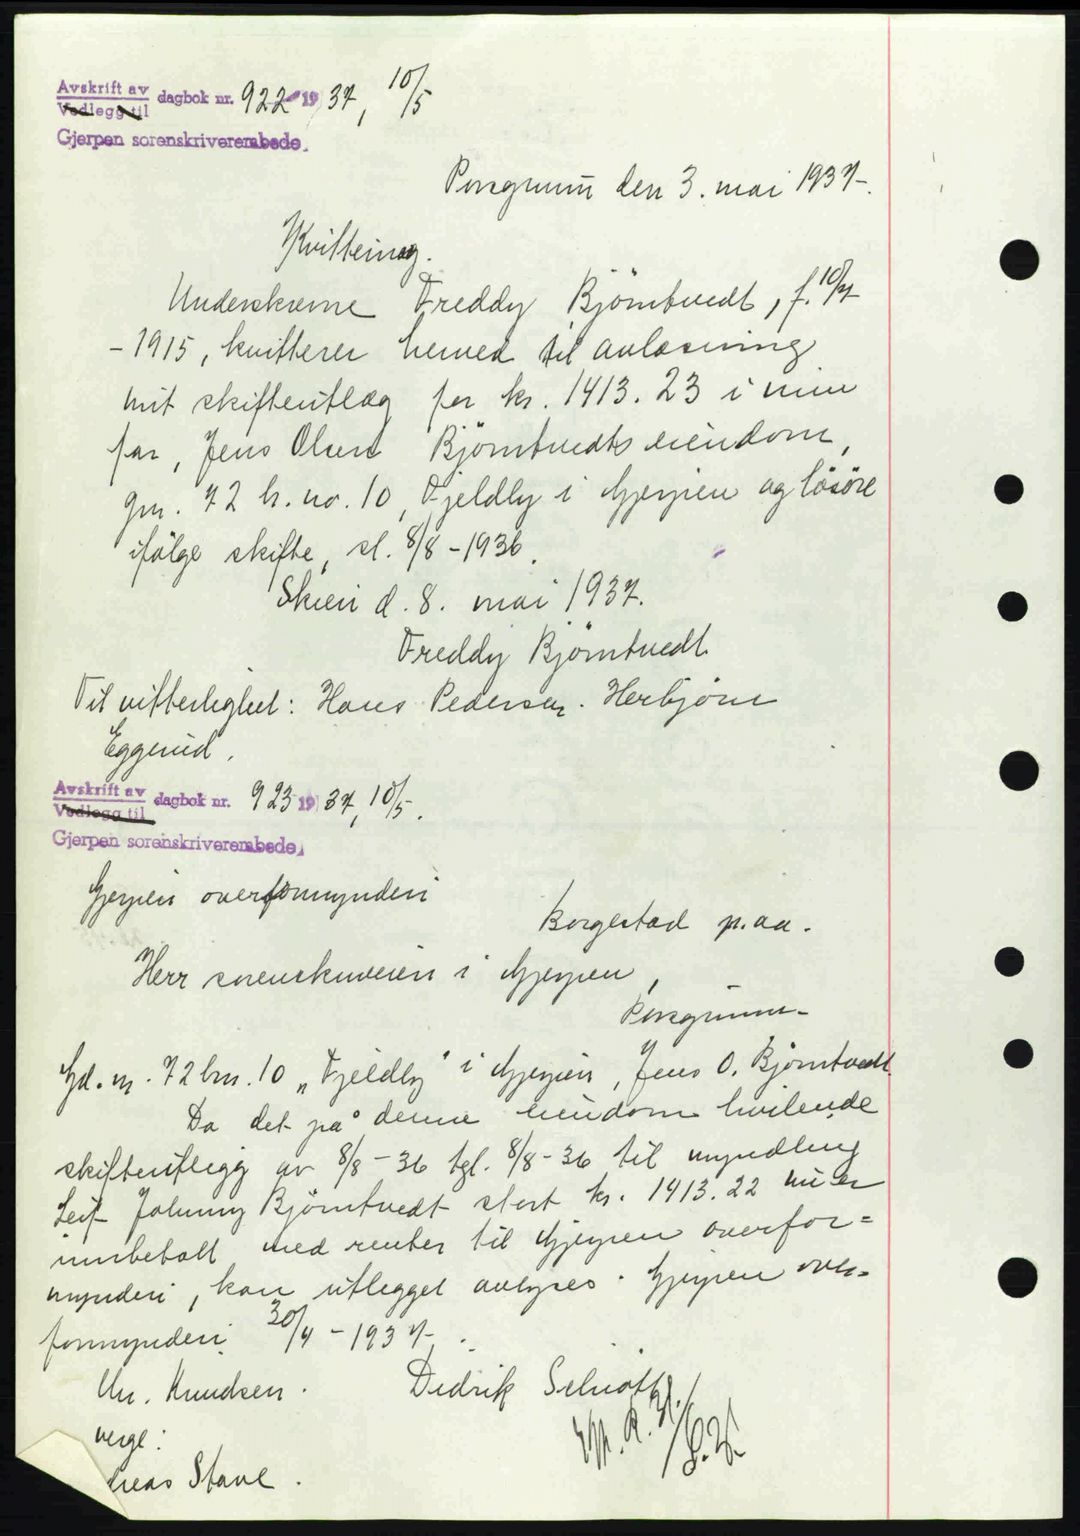 Avskrift av
Vedlegg til dagbok nr. 922 1937, 10/5
Gjerpen sorenskriverembede.
Porsgrunn den 3. mai 1937.
Kvittering.
Underskrevne Freddy Björntvedt, f. 10/4
- 1915, kvitterer herved til avlæsning
mit skifteutlæg per kr. 1413.23 i min
far, Jens Olsen Björntvedts eiendom,
gnr. 72 b. no. 10, Fjeldly i Gjerpen og lösöre
ifölge skifte, sl. 8/8 - 1936.
Skien d. 8. mai 1937.
Freddy Björntvedt
Til vitterlighet: Hans Pedersen. Herbjörn
Eggerud.
Avskrift av
Vedlegg til dagbok nr. 923 1937, 10/5.
Gjerpen sorenskriverembede.
Gjerpen overformynderi
Borgestad p.aa.
Herr sorenskriveren i Gjerpen,
Porsgrunn.
Gd. nr. 72 bnr. 10 „Fjeldly" i Gjerpen, Jens O. Björntvedt.
Da det på denne eiendom hvilende
skifteutlegg av 8/8 - 36 tgl. 8/8 - 36 til myndling
Leif Johnny Björntvedt stort kr. 1413.22 nu er
innbetalt med renter til Gjerpen overfor=
mynderi, kan utlegget avlyses. Gjerpen over=
formynderi 30/4 - 1937.
Chr. Knudsen. Didrik Schiøtt.
verge:
reas Stave.